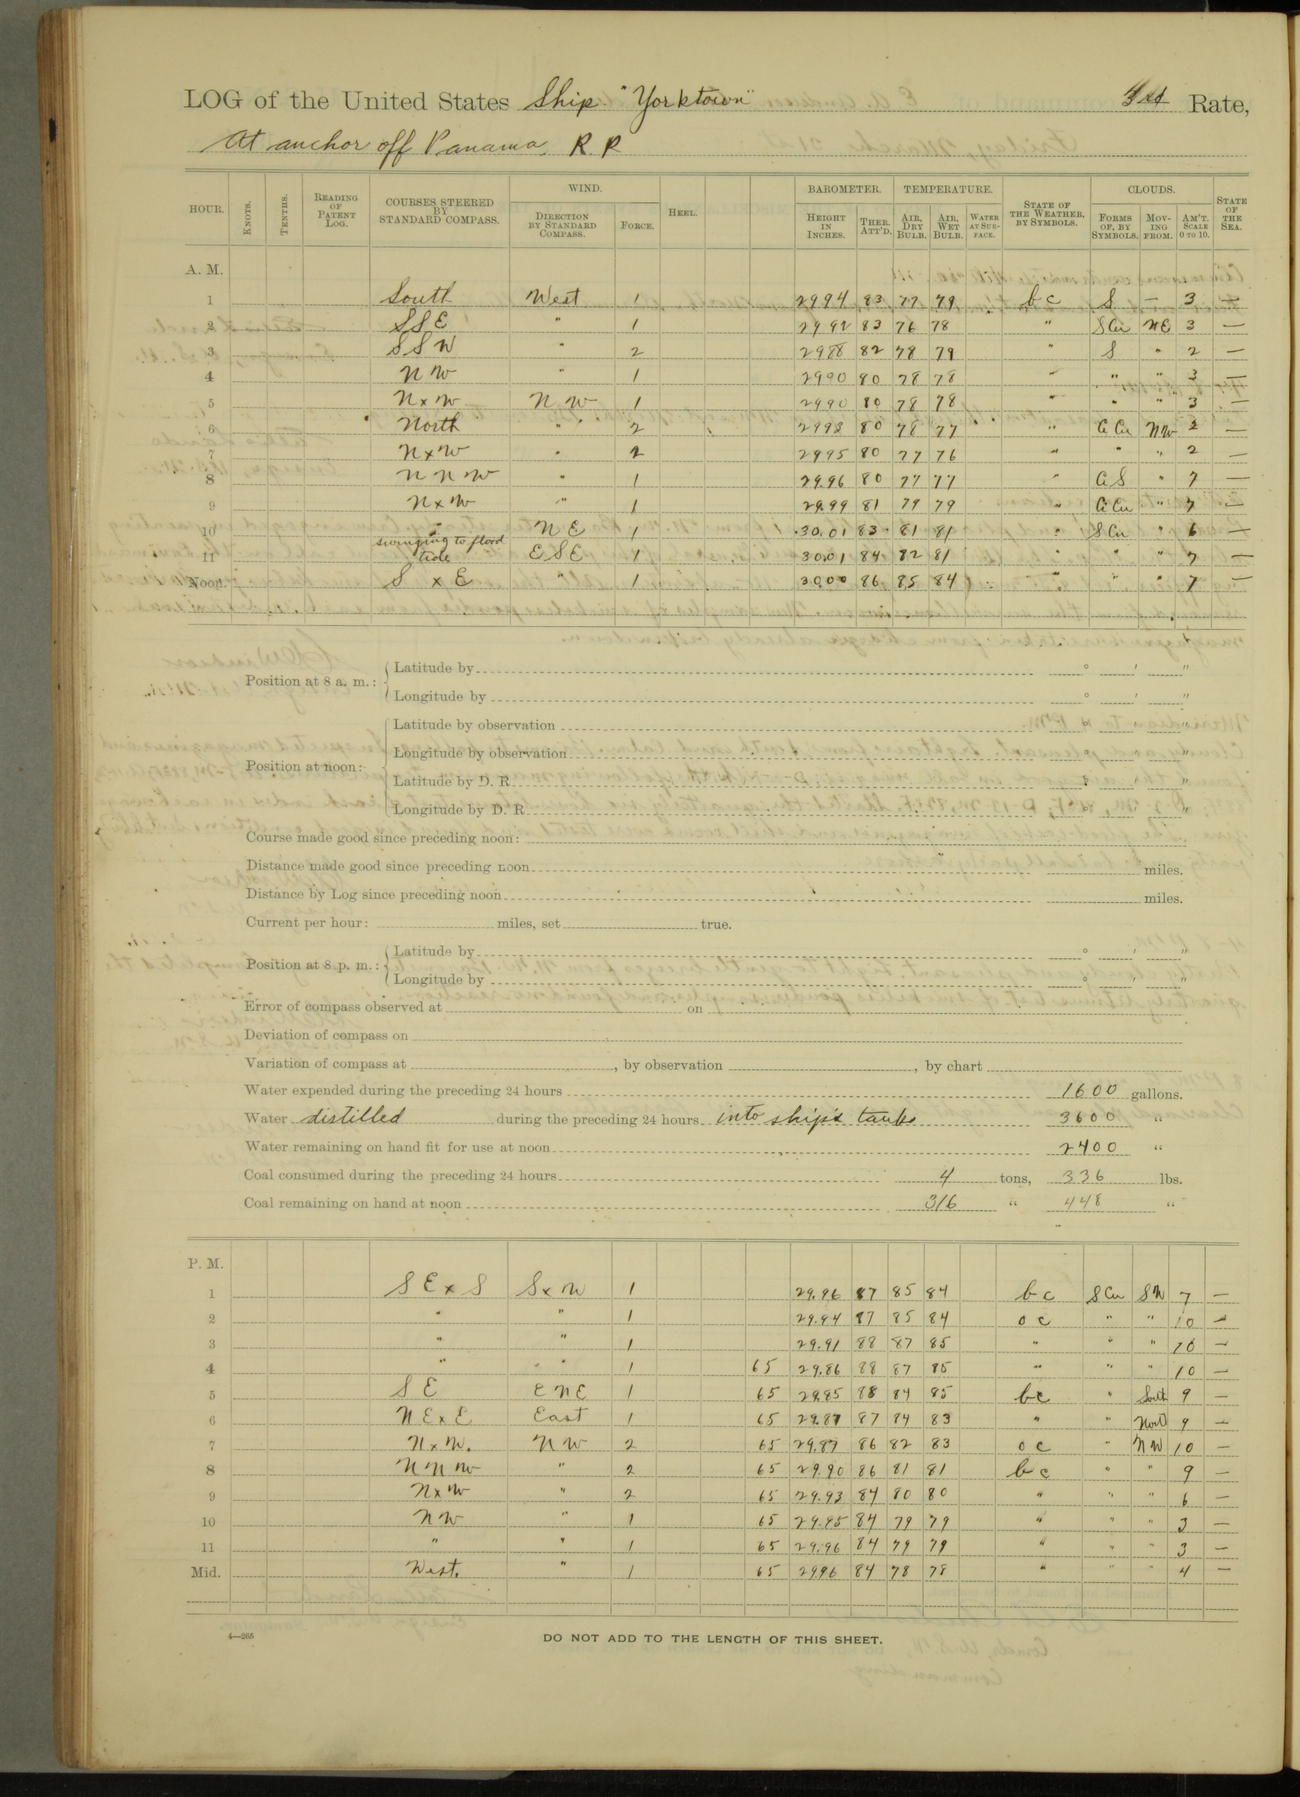 LOG of the United States Ship "Yorktown" Rate,
At anchor off Panama, R. P.
HOUR. KNOTS. TENTHS. READING OF PATENT LOG. COURSES STEERED BY STANDARD COMPASS. WIND. DIRECTION BY STANDARD COMPASS. FORCE. HEEL. BAROMETER. HEIGHT IN INCHES. THER. ATT'D. TEMPERATURE. AIR, DRY BULB. AIR, WET BULB. WATER AT SURFACE. STATE OF THE WEATHER, BY SYMBOLS. CLOUDS. FORMS OF, BY SYMBOLS. MOVING FROM. AM'T. SCALE 0 TO 10. STATE OF THE SEA.
A. M.
1 South West 1 2994 83 77 79 bc S — 3 —
2 SSE " 1 2992 83 76 78 " SCu NE 3 —
3 SSW " 2 2988 82 78 79 " S " 2 —
4 NW " 1 2990 80 78 78 " " " 3 —
5 NxW NW 1 2990 80 78 78 " " " 3 —
6 North " 2 2993 80 78 77 " CCu NW 2 —
7 NxW " 2 2995 80 77 76 " " " 2 —
8 NNW " 1 29.96 80 77 77 " CS " 7 —
9 NxW " 1 29.99 81 79 79 " CCu " 7 —
10 " NE 1 30.01 83 81 81 " SCu " 6 —
11 swinging to flood tide ESE 1 30.01 84 82 81 " " " 7 —
Noon. S x E " 1 30.00 86 85 84 " " " 7 —
Position at 8 a. m.: Latitude by ° ' "
Longitude by ° ' "
Position at noon: Latitude by observation
Longitude by observation
Latitude by D. R.
Longitude by D. R.
Course made good since preceding noon:
Distance made good since preceding noon miles.
Distance by Log since preceding noon miles.
Current per hour: miles, set true.
Position at 8 p. m.: Latitude by ° ' "
Longitude by ° ' "
Error of compass observed at on
Deviation of compass on
Variation of compass at , by observation , by chart
Water expended during the preceding 24 hours 1600 gallons.
Water distilled during the preceding 24 hours into ship's tanks 3600 "
Water remaining on hand fit for use at noon 2400 "
Coal consumed during the preceding 24 hours 4 tons, 336 lbs.
Coal remaining on hand at noon 316 " 448 "
P. M.
1 SExS SxW 1 29.96 87 85 84 bc SCu SW 7 —
2 " " 1 29.94 87 85 84 oc " " 10 —
3 " " 1 29.91 88 87 85 " " " 10 —
4 " " 1 65 29.86 88 87 85 " " " 10 —
5 SE ENE 1 65 29.85 88 84 85 bc " South 9 —
6 NExE East 1 65 29.87 87 84 83 " " North 9 —
7 NxW. NW 2 65 29.87 86 82 83 oc " NW 10 —
8 NNW " 2 65 29.90 86 81 81 bc " " 9 —
9 NxW " 2 65 29.93 84 80 80 " " " 6 —
10 NW " 1 65 29.95 84 79 79 " " " 3 —
11 " " 1 65 29.96 84 79 79 " " " 3 —
Mid. West. " 1 65 2996 84 78 78 " " " 4 —
4—265
DO NOT ADD TO THE LENGTH OF THIS SHEET.